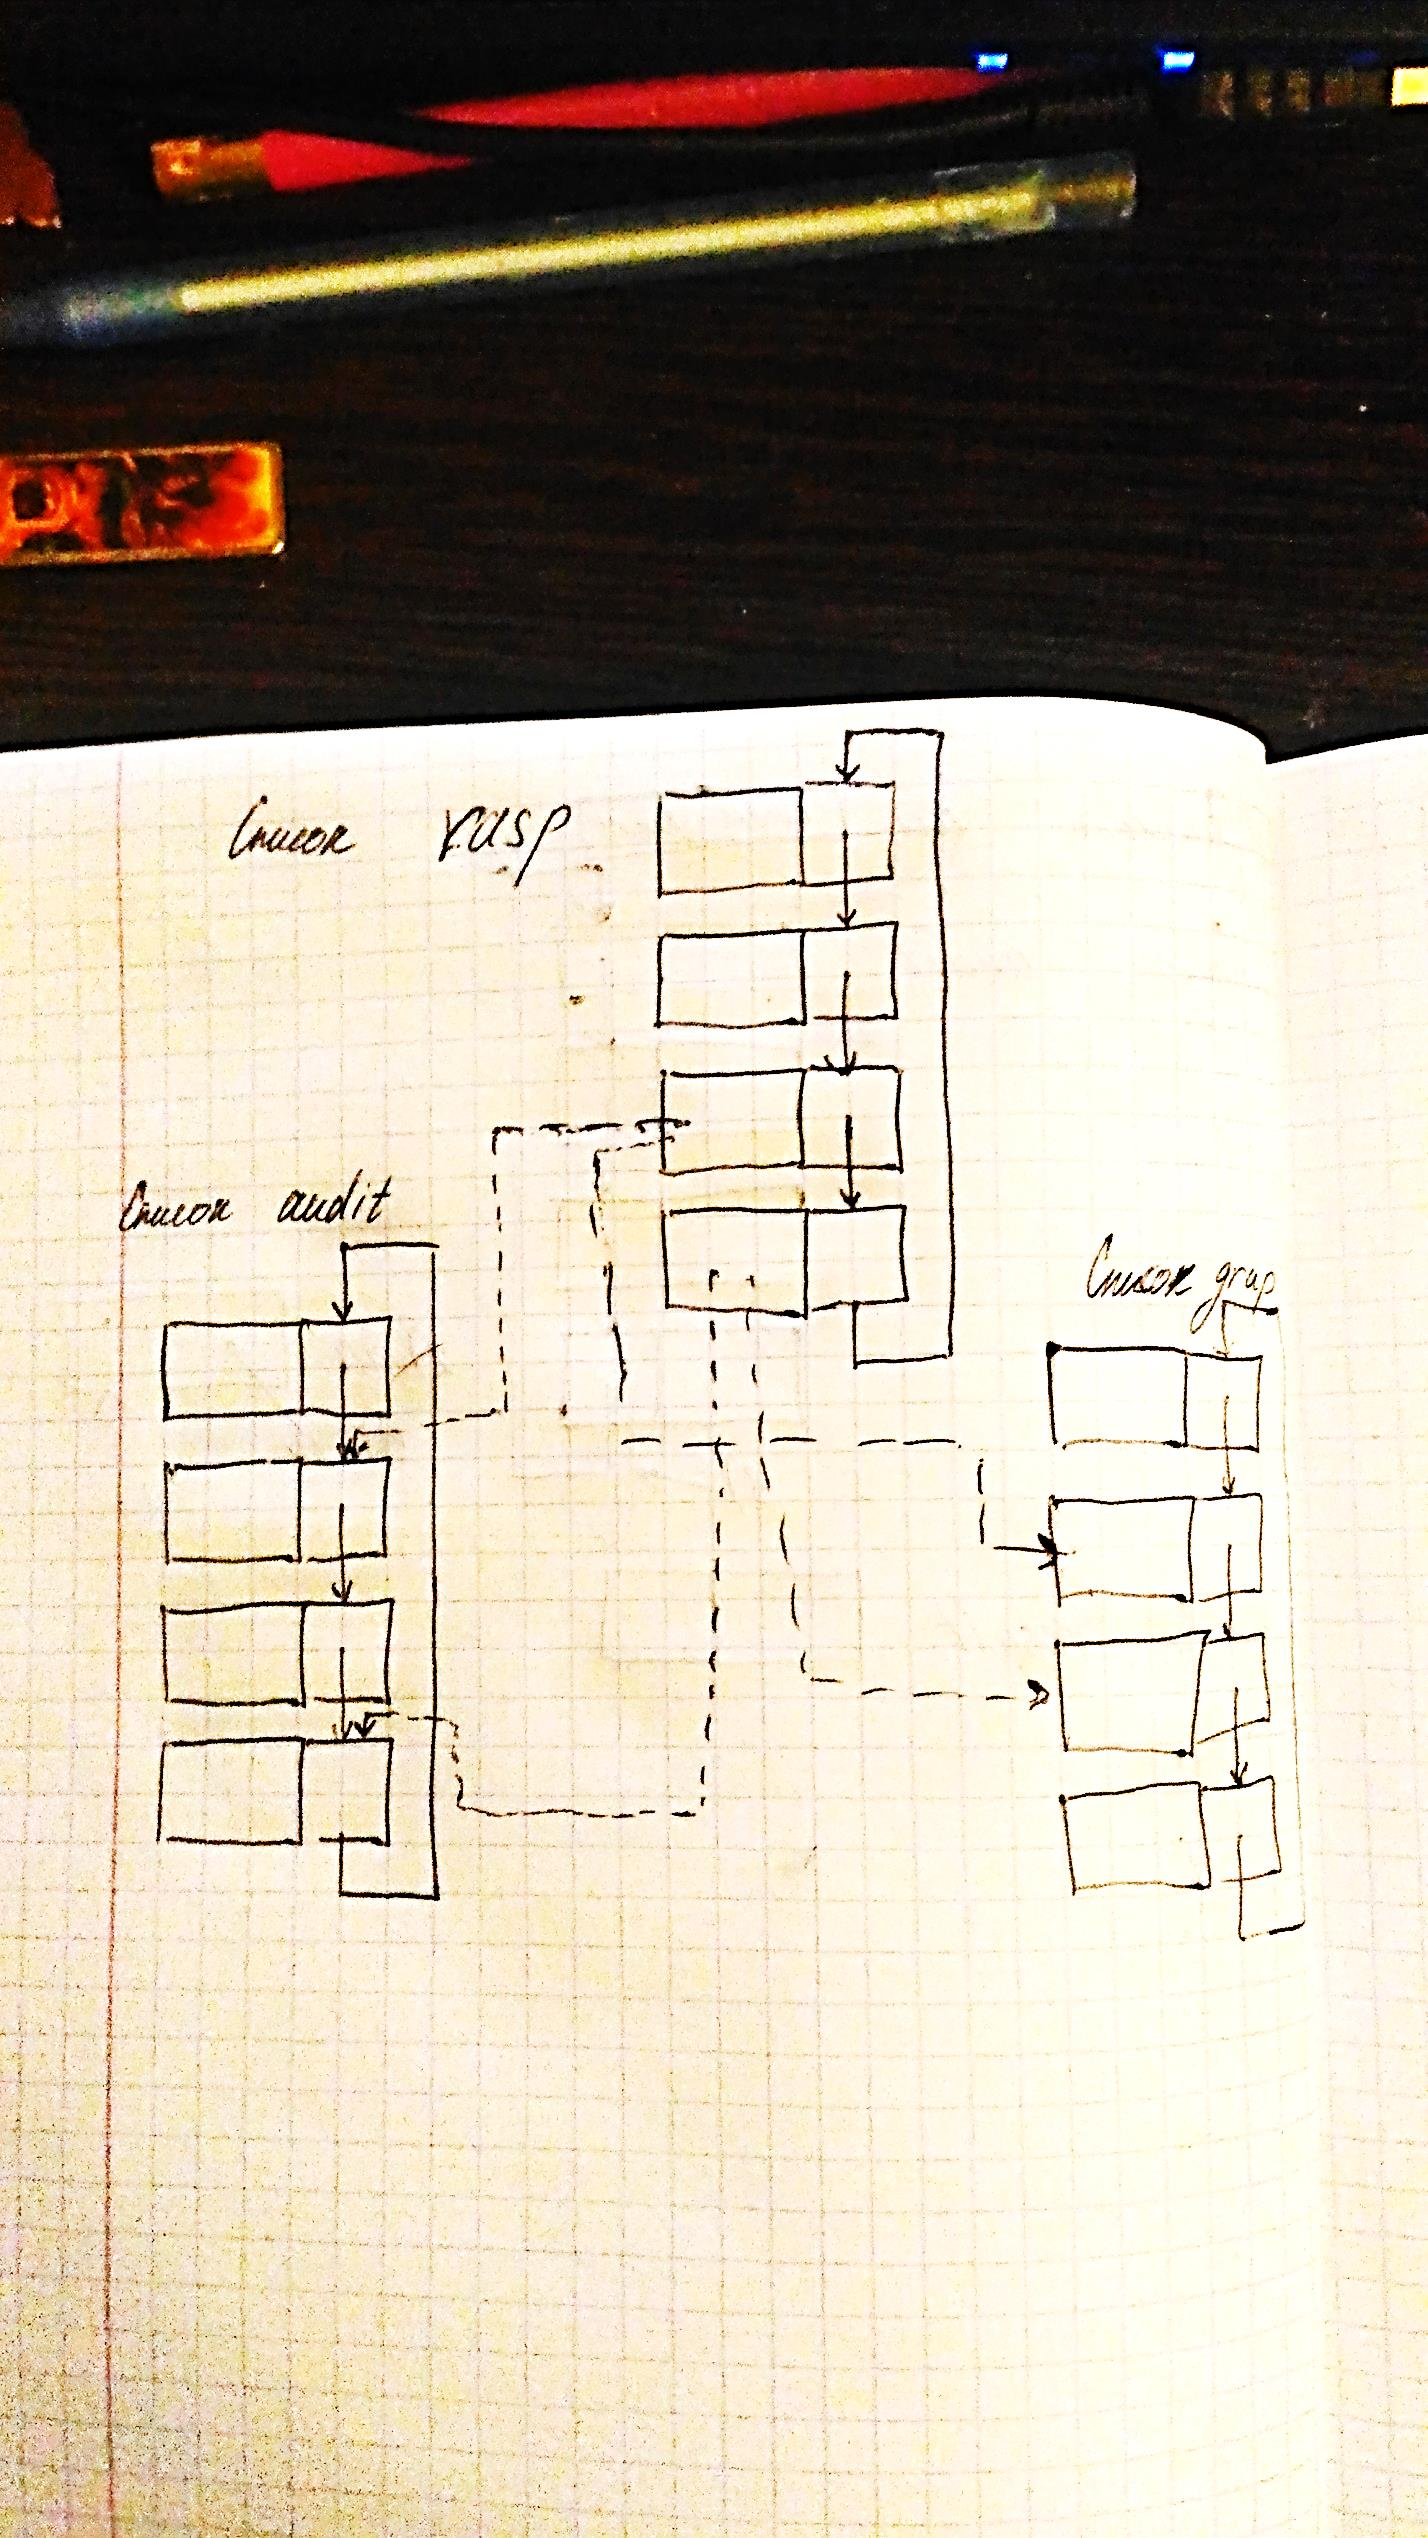 Список rasp
Список audit
Список grup